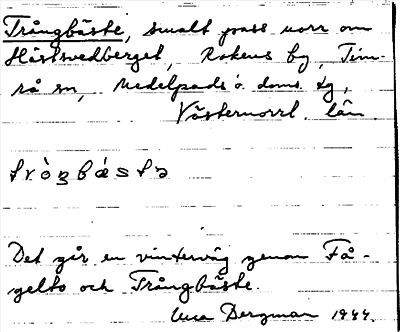 Trångbäste, smalt pass norr om
Hästsvedberget, Rokens by, Tim-
rå sn, Medelpads ö. doms. dg,
Västernorrl. län.
Det går en vinterväg genom Få-
gelbo och Trångbäste.
Bergman 1944.